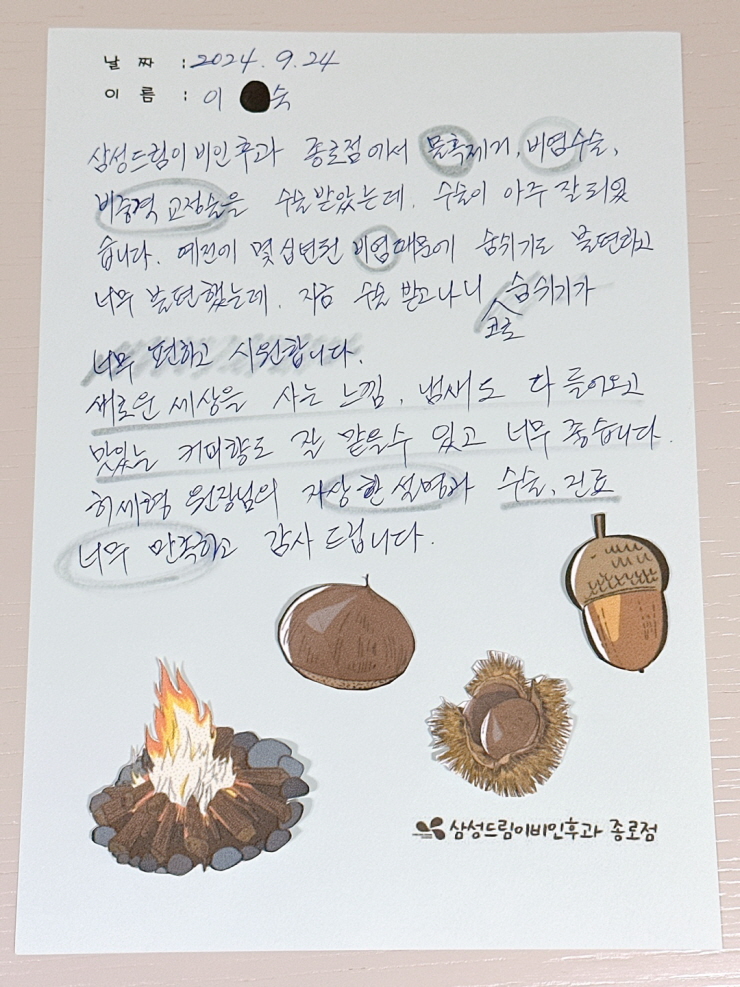 날 짜 : 2024. 9. 24
이 름 : 이 숙
삼성드림이비인후과 종로점에서 물혹제거, 비염수술,
비중격 교정술을 수술받았는데. 수술이 아주 잘 되었
습니다. 예전에 몇십년된 비염때문에 숨쉬기도 불편하고
너무 불편했는데. 지금 수술 받고나니 숨쉬기가
코로
너무 편하고 시원합니다.
새로운 세상을 사는 느낌, 냄새도 다 들어오고
맛있는 커피향도 잘 맡을수 있고 너무 좋습니다.
허세형 원장님의 자상한 설명과 수술, 진료
너무 만족하고 감사 드립니다.
삼성드림이비인후과 종로점